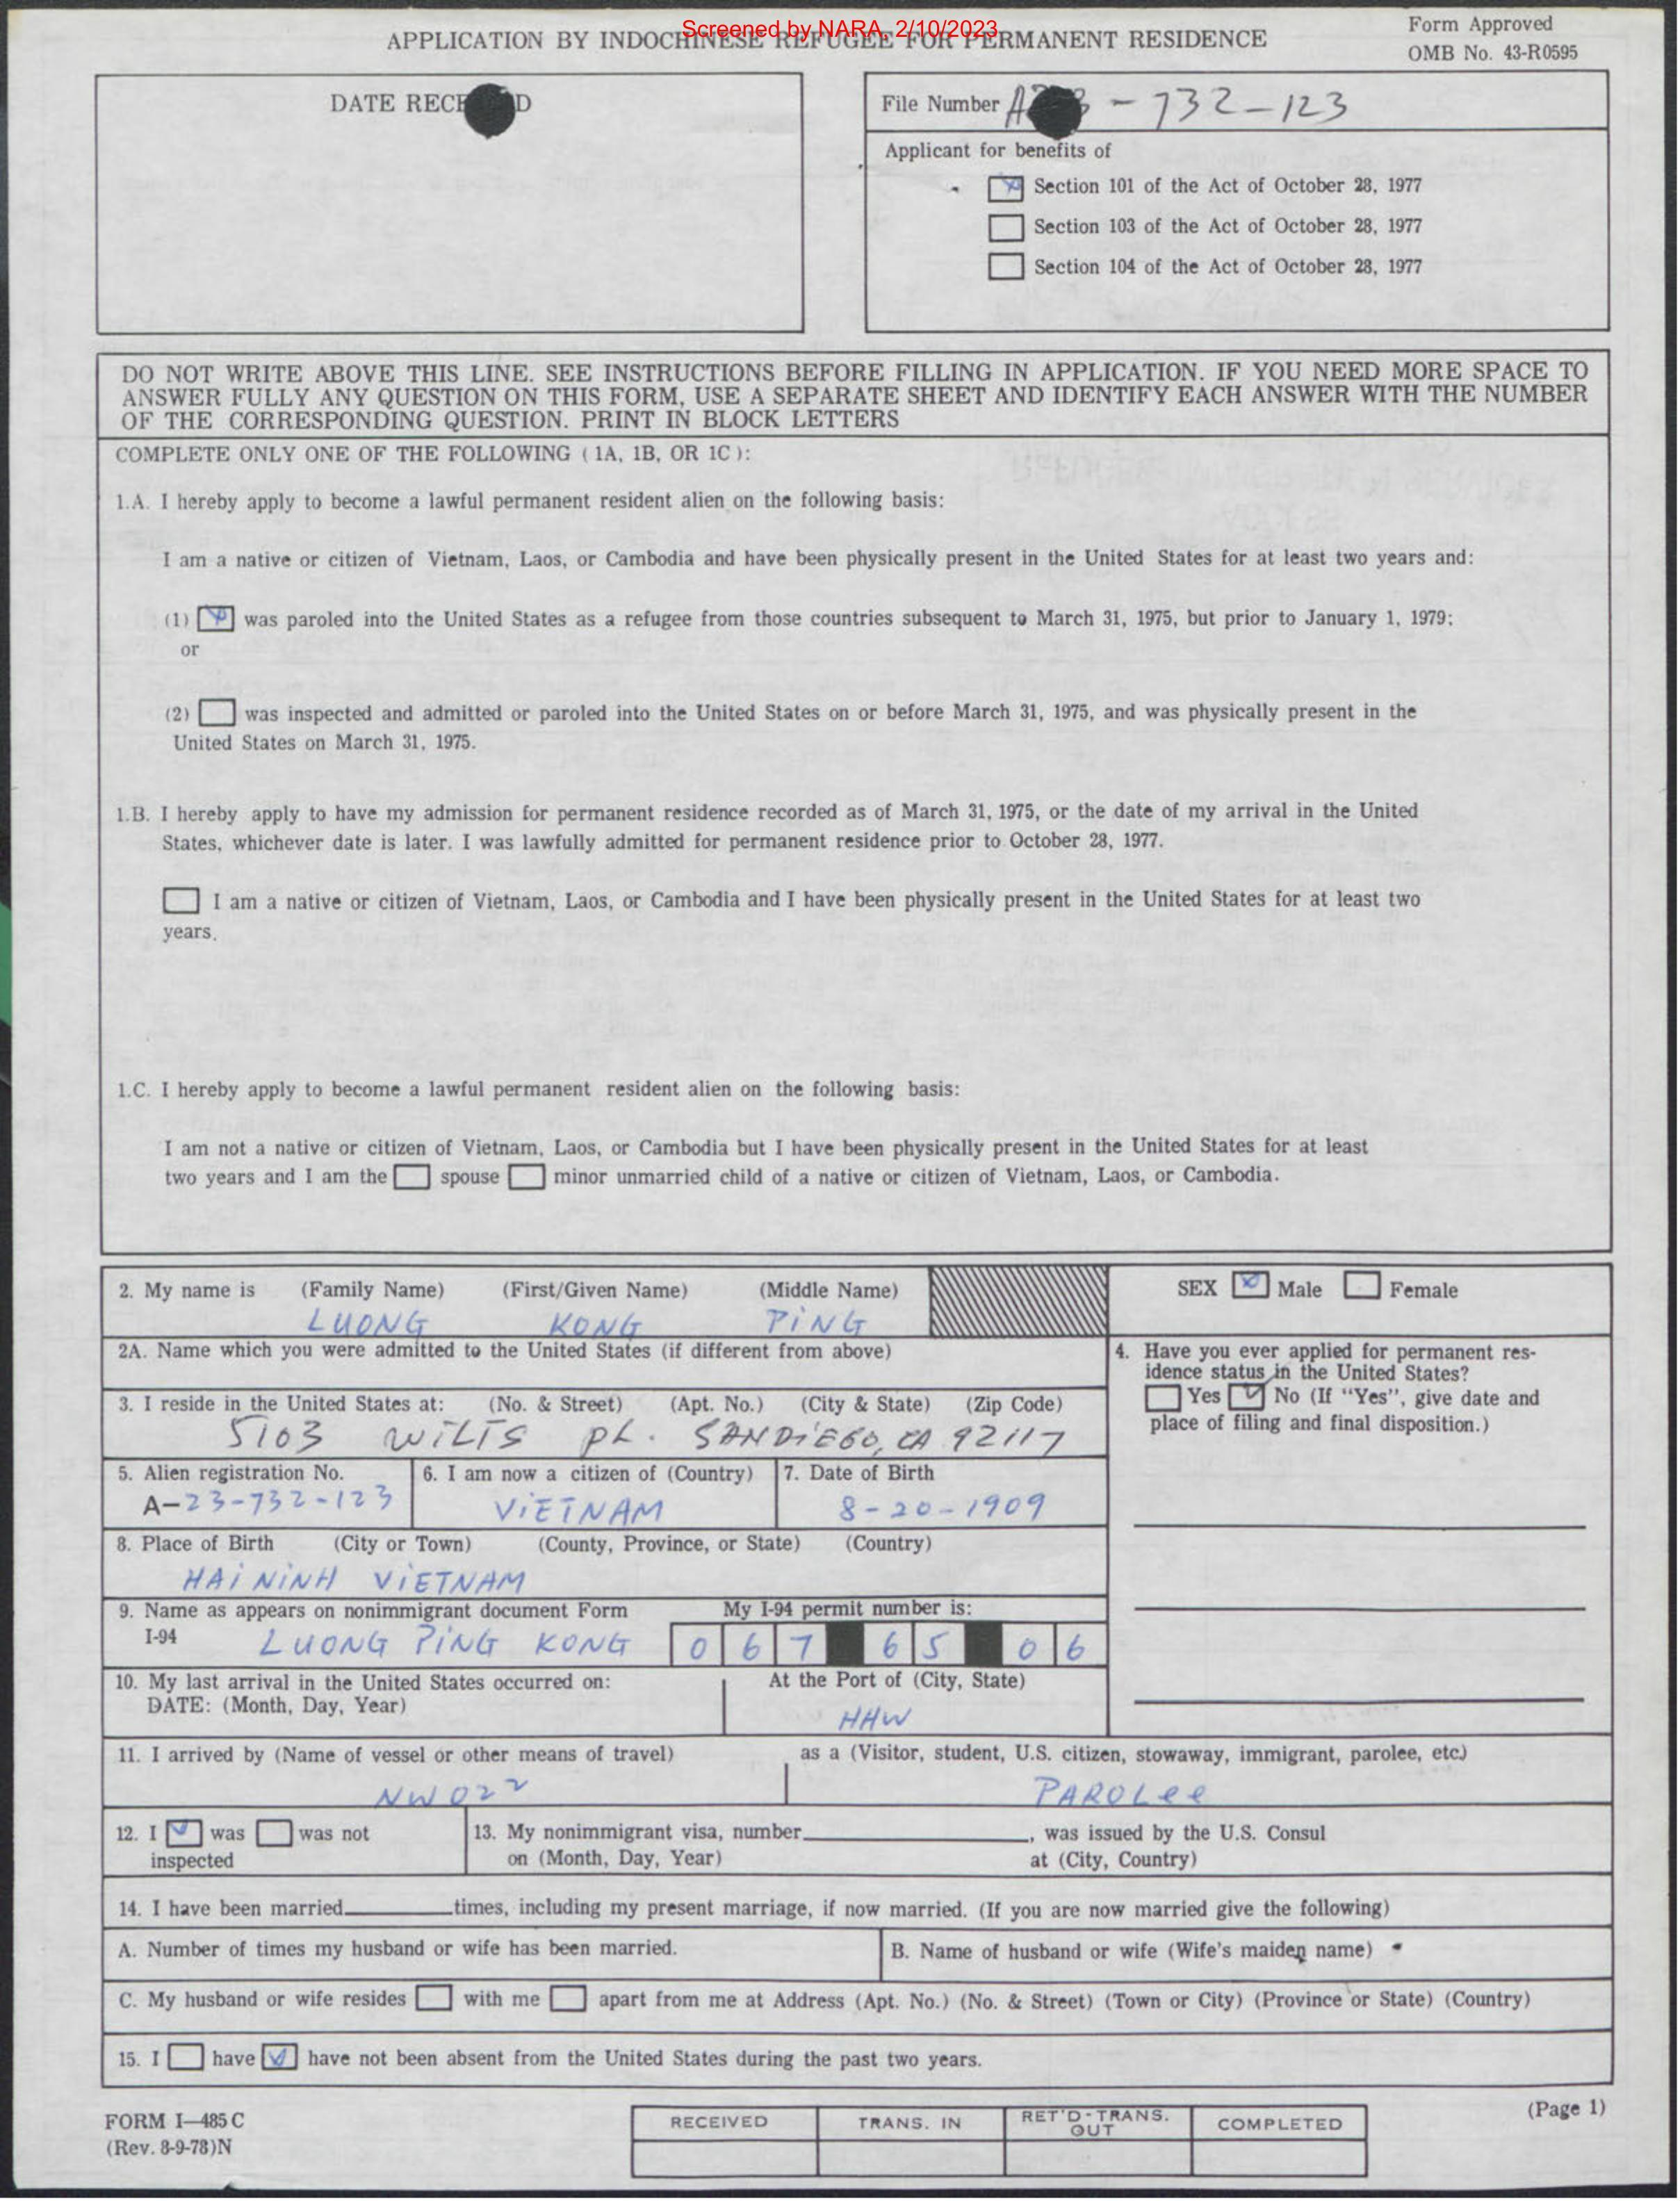 Screened by NARA, 2/10/2023
APPLICATION BY INDOCHINESE REFUGEE FOR PERMANENT RESIDENCE
Form Approved
OMB No. 43-R0595
DATE RECEIVED
File Number A23-732-123
Applicant for benefits of
Section 101 of the Act of October 28, 1977
Section 103 of the Act of October 28, 1977
Section 104 of the Act of October 28, 1977
DO NOT WRITE ABOVE THIS LINE. SEE INSTRUCTIONS BEFORE FILLING IN APPLICATION. IF YOU NEED MORE SPACE TO
ANSWER FULLY ANY QUESTION ON THIS FORM, USE A SEPARATE SHEET AND IDENTIFY EACH ANSWER WITH THE NUMBER
OF THE CORRESPONDING QUESTION. PRINT IN BLOCK LETTERS
COMPLETE ONLY ONE OF THE FOLLOWING (1A, 1B, OR 1C):
1.A. I hereby apply to become a lawful permanent resident alien on the following basis:
I am a native or citizen of Vietnam, Laos, or Cambodia and have been physically present in the United States for at least two years and:
(1) was paroled into the United States as a refugee from those countries subsequent to March 31, 1975, but prior to January 1, 1979;
or
(2) was inspected and admitted or paroled into the United States on or before March 31, 1975, and was physically present in the
United States on March 31, 1975.
1.B. I hereby apply to have my admission for permanent residence recorded as of March 31, 1975, or the date of my arrival in the United
States, whichever date is later. I was lawfully admitted for permanent residence prior to October 28, 1977.
I am a native or citizen of Vietnam, Laos, or Cambodia and I have been physically present in the United States for at least two
years.
1.C. I hereby apply to become a lawful permanent resident alien on the following basis:
I am not a native or citizen of Vietnam, Laos, or Cambodia but I have been physically present in the United States for at least
two years and I am the spouse minor unmarried child of a native or citizen of Vietnam, Laos, or Cambodia.
2. My name is (Family Name) (First/Given Name) (Middle Name)
LUONG KONG PiNG
SEX Male Female
2A. Name which you were admitted to the United States (if different from above)
4. Have you ever applied for permanent res-
idence status in the United States?
Yes No (If "Yes", give date and
place of filing and final disposition.)
3. I reside in the United States at: (No. & Street) (Apt. No.) (City & State) (Zip Code)
5103 WiLTS PL. SANDiEGO, CA 92117
5. Alien registration No.
A-23-732-123
6. I am now a citizen of (Country)
ViETNAM
7. Date of Birth
8-20-1909
8. Place of Birth (City or Town) (County, Province, or State) (Country)
HAi NiNH ViETNAM
9. Name as appears on nonimmigrant document Form
I-94 LUONG PiNG KONG
My I-94 permit number is:
0 6 7 6 5 0 6
10. My last arrival in the United States occurred on:
DATE: (Month, Day, Year)
At the Port of (City, State)
HHW
11. I arrived by (Name of vessel or other means of travel)
NW 022
as a (Visitor, student, U.S. citizen, stowaway, immigrant, parolee, etc.)
PAROLee
12. I was was not
inspected
13. My nonimmigrant visa, number , was issued by the U.S. Consul
on (Month, Day, Year) at (City, Country)
14. I have been married times, including my present marriage, if now married. (If you are now married give the following)
A. Number of times my husband or wife has been married.
B. Name of husband or wife (Wife's maiden name)
C. My husband or wife resides with me apart from me at Address (Apt. No.) (No. & Street) (Town or City) (Province or State) (Country)
15. I have have not been absent from the United States during the past two years.
FORM I-485 C
(Rev. 8-9-78)N
RECEIVED
TRANS. IN
RET'D-TRANS.
OUT
COMPLETED
(Page 1)